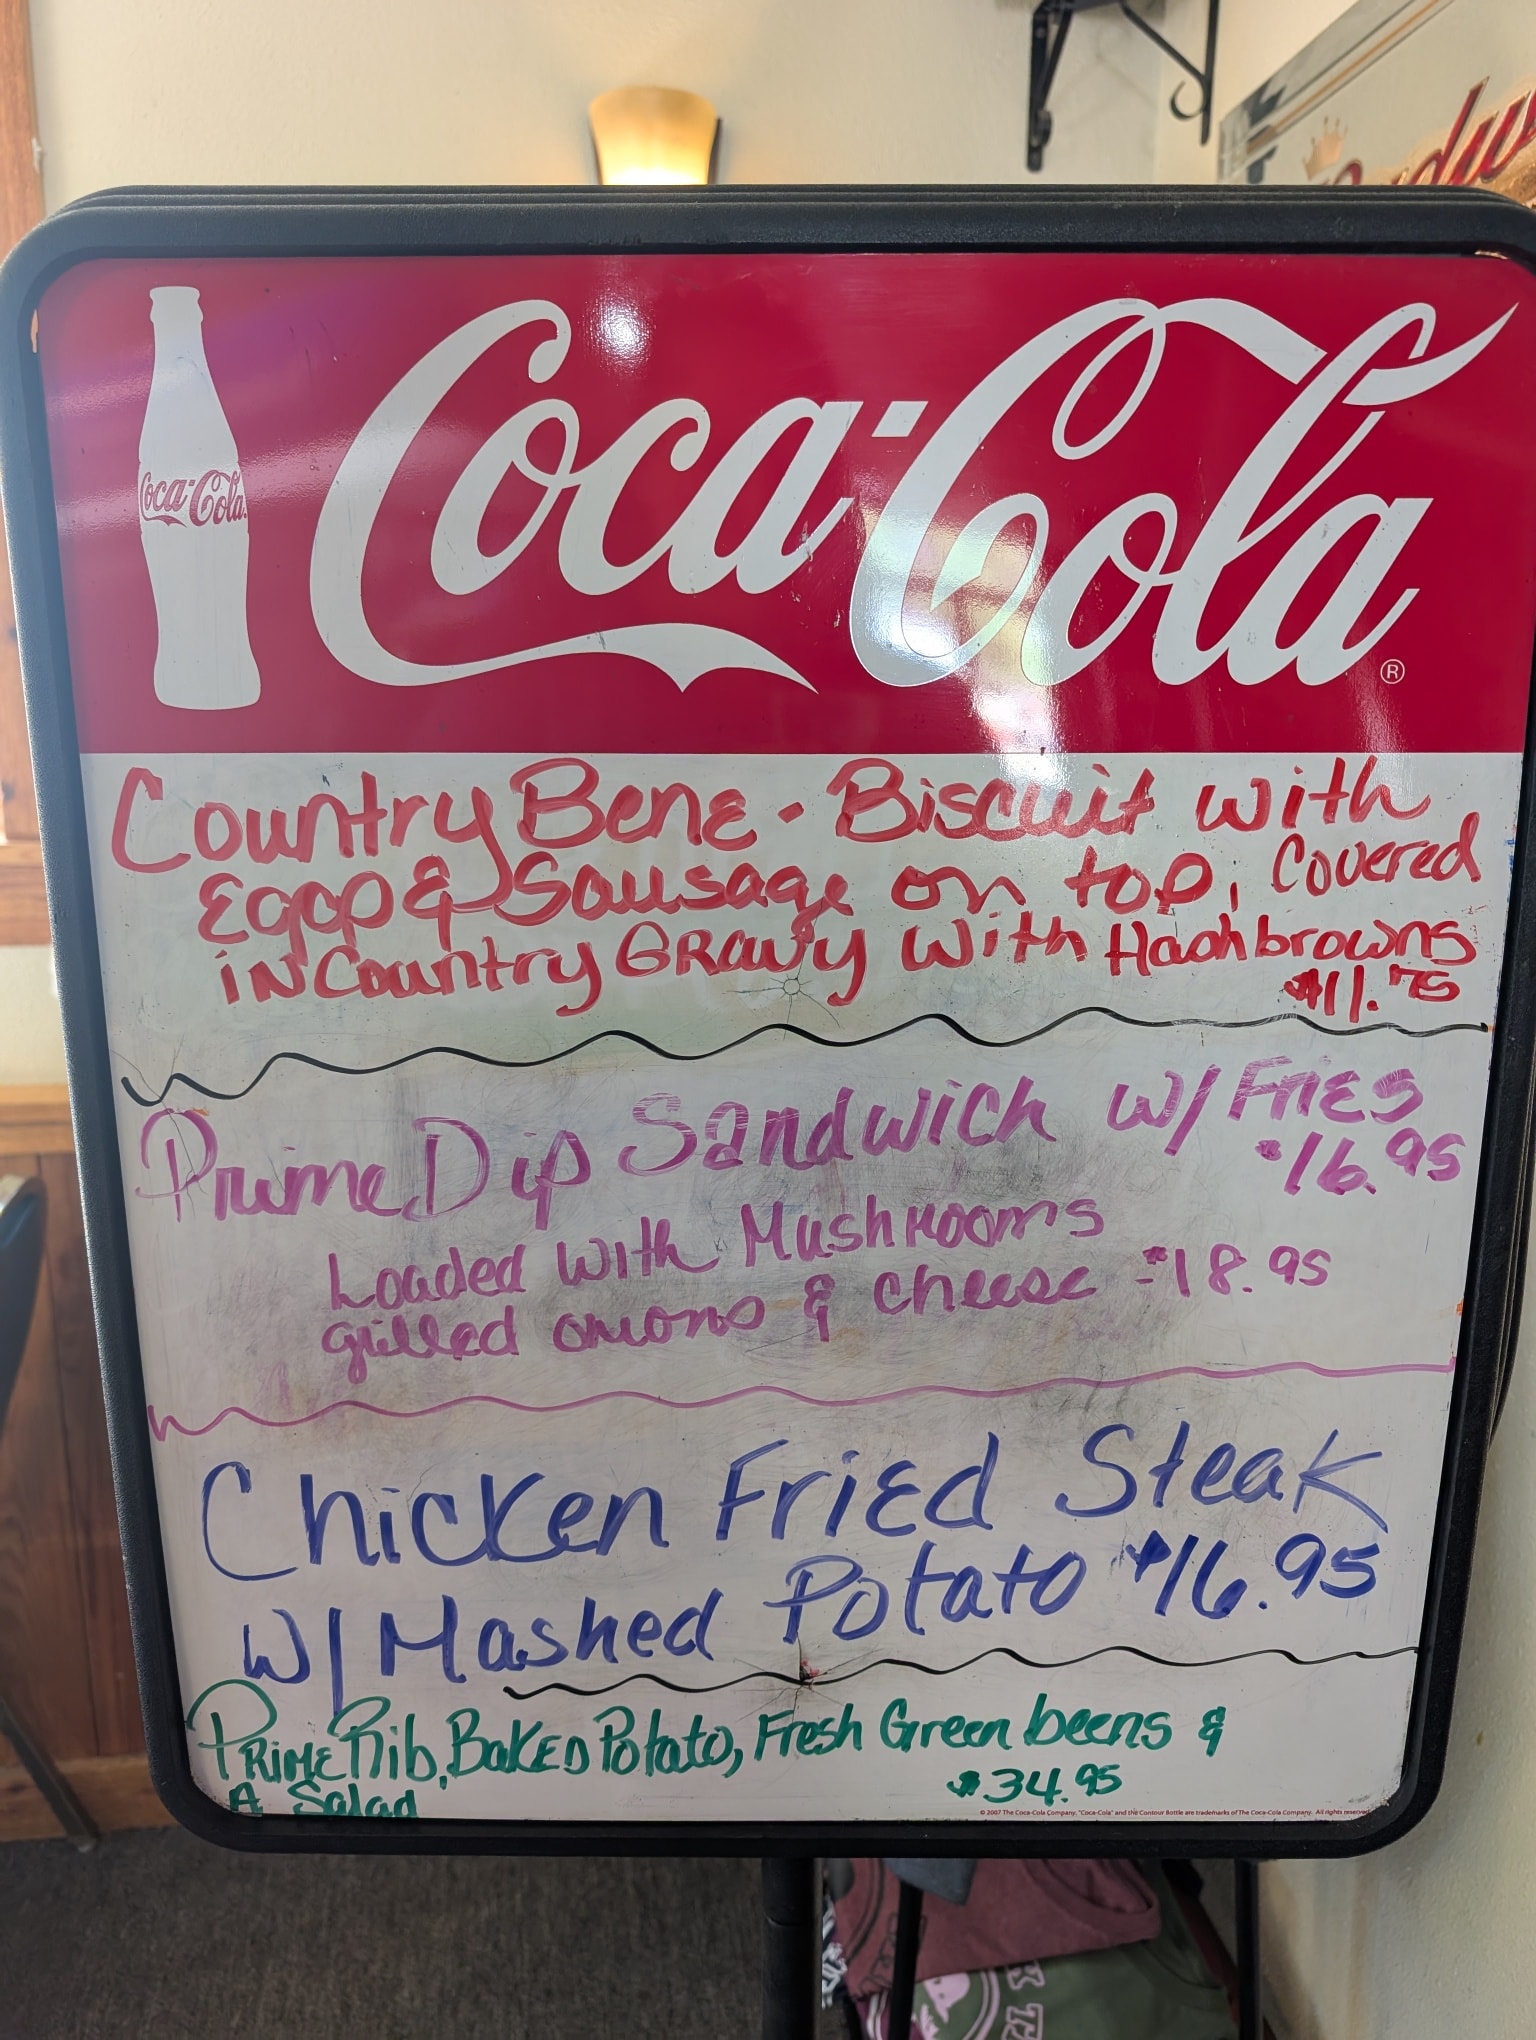 Coca-Cola
Coca-Cola®
Country Bene - Biscuit with
Egg & Sausage on top, Covered
in Country Gravy with Hashbrowns
$11.75
Prime Dip Sandwich w/ Fries
$16.95
Loaded with Mushrooms
grilled onions & cheese - $18.95
Chicken Fried Steak
w/ Mashed Potato $16.95
Prime Rib, Baked Potato, Fresh Green beens &
A Salad $34.95
© 2007 The Coca-Cola Company. "Coca-Cola" and the Contour Bottle are trademarks of The Coca-Cola Company. All rights reserved.